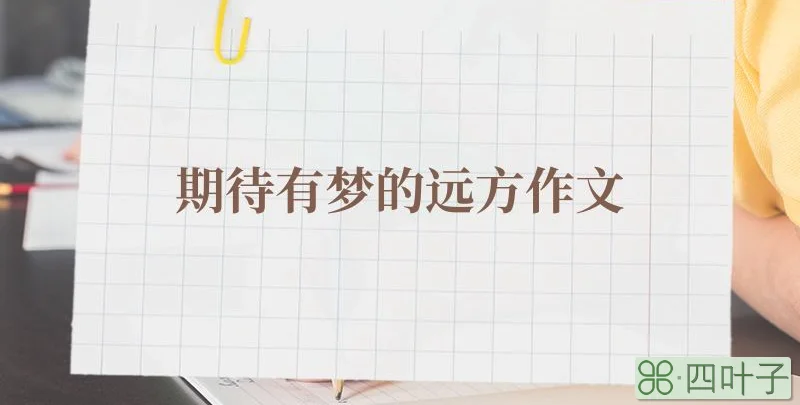 期待有梦的远方作文
四叶子